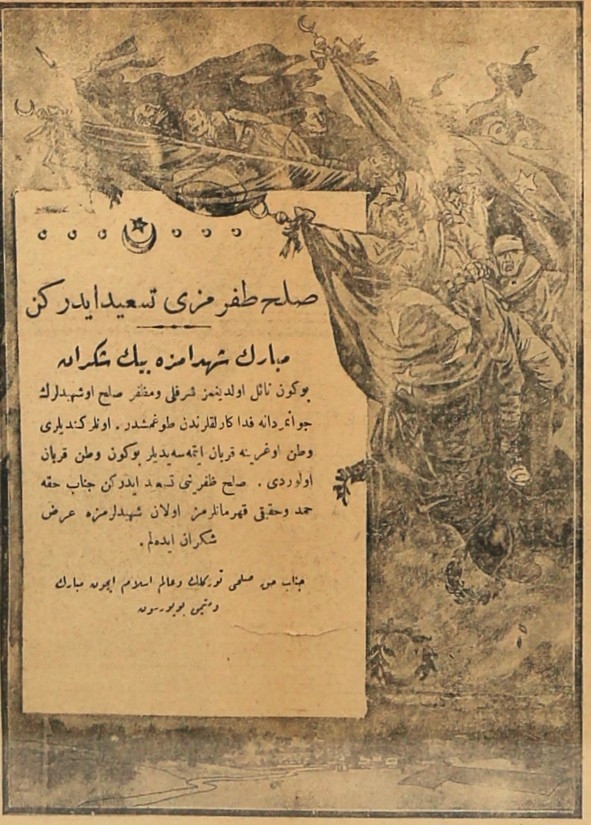 صلح ظفرمزی تسعید ایدركن
مبارك شهدامزه بیك شكران
بوكون نائل اولدیغمز شرفلی ومظفر صلح اوشهیدلرك
جوانمردانه فداكارلقلرندن طوغمشدر . اونلر كندیلری
وطن اوغرینه قربان ایتمه سه یدیلر بوكون وطن قربان
اولوردی . صلح ظفرینی تسعید ایدركن جناب حقه
حمد وحقیقی قهرمانلرمز اولان شهیدلرمزه عرض
شكران ایده لم .
جناب حق صلحی توركلك وعالم اسلام ایچون مبارك
ومتیمن بویورسون